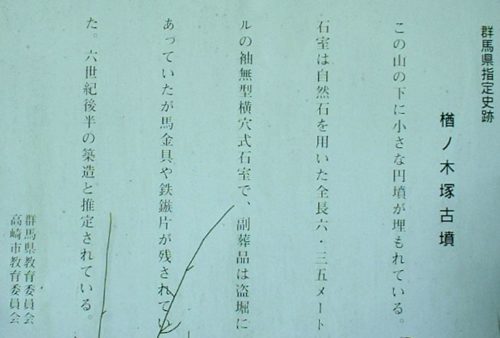 群馬県指定史跡
楢ノ木塚古墳
この山の下に小さな円墳が埋もれている。
石室は自然石を用いた全長六・三五メート
ルの袖無型横穴式石室で、副葬品は盗堀に
あっていたが馬金具や鉄鏃片が残されてい
た。六世紀後半の築造と推定されている。
群馬県教育委員会
高崎市教育委員会